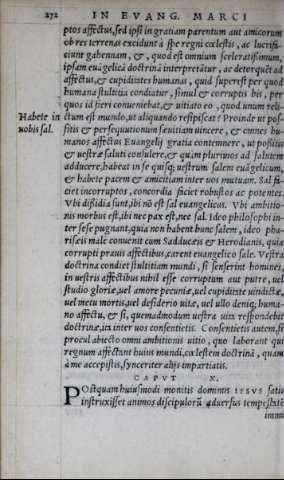 272 IN EVANG. MARCI
ptos affectus, sed ipsi in gratiam parentum aut amicorum
ob res terrenas excidunt à spe regni cœlestis, ac lucrifi-
ciunt gehennam, &, quod est omnium sceleratissimum,
ipsam euãgelicã doctrinã interpretãtur, ac detorquẽt ad
affectus, & cupiditates humanas, quid superest per quod
humana stultitia condiatur, simul & corruptis bis, per
quos id fieri conueniebat, & uitiato eo, quod unum reli-
Habete in ctum est mundo, ut aliquando resipiscat? Proinde ut pos-
uobis sal. sitis & persequutionum sæuitiam uincere, & omnes hu-
manos affectus Euangelij gratia contemnere, ut possitis
& uestræ saluti consulere, & quàm plurimos ad salutem
adducere, habeat in se quisq; uestrum salem euãgelicum,
& habete pacem & amicitiam inter uos mutuam. Sal fa-
ciet incorruptos, concordia faciet robustos ac potentes.
Vbi dissidia sunt, ibi nõ est sal euangelicus. Vbi ambitio-
nis morbus est, ibi nec pax est, nec sal. Ideo philosophi in-
ter sese pugnant, quia non habent hunc salem, ideo pha-
risæis male conuenit cum Sadducæis & Herodianis, quia
corrupti prauis affectibus, carent euangelico sale. Vestra
doctrina condiet stultitiam mundi, si senserint homines,
in uestris affectibus nihil esse corruptum aut putre, uel
studio gloriæ, uel amore pecuniæ, uel cupiditate uindictæ,
uel metu mortis, uel desiderio uitæ, uel ullo deniq; huma-
no affectu, & si, quemadmodum uestra uita respondebit
doctrinæ, ita inter uos consentietis. Consentietis autem, si
procul abiecto omni ambitionis uitio, quo laborant qui
regnum affectant huius mundi, cœlestem doctrinã, quam
à me accepistis, synceriter alijs impartiatis.
CAPVT X.
POstquam huiusmodi monitis dominus IESVS satis
instruxisset animos discipulorũ aduersus tempestatẽ
immi